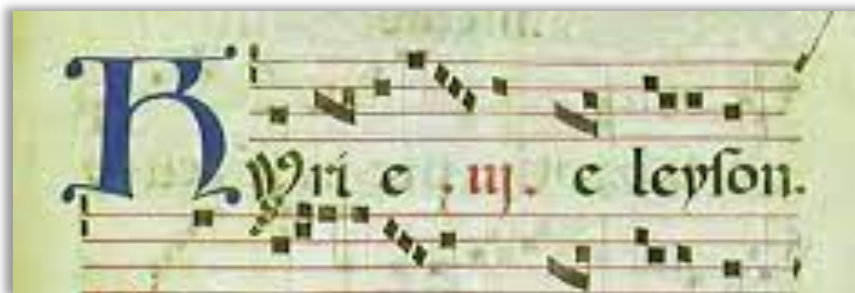 Kyri e .iij. e leyſon.